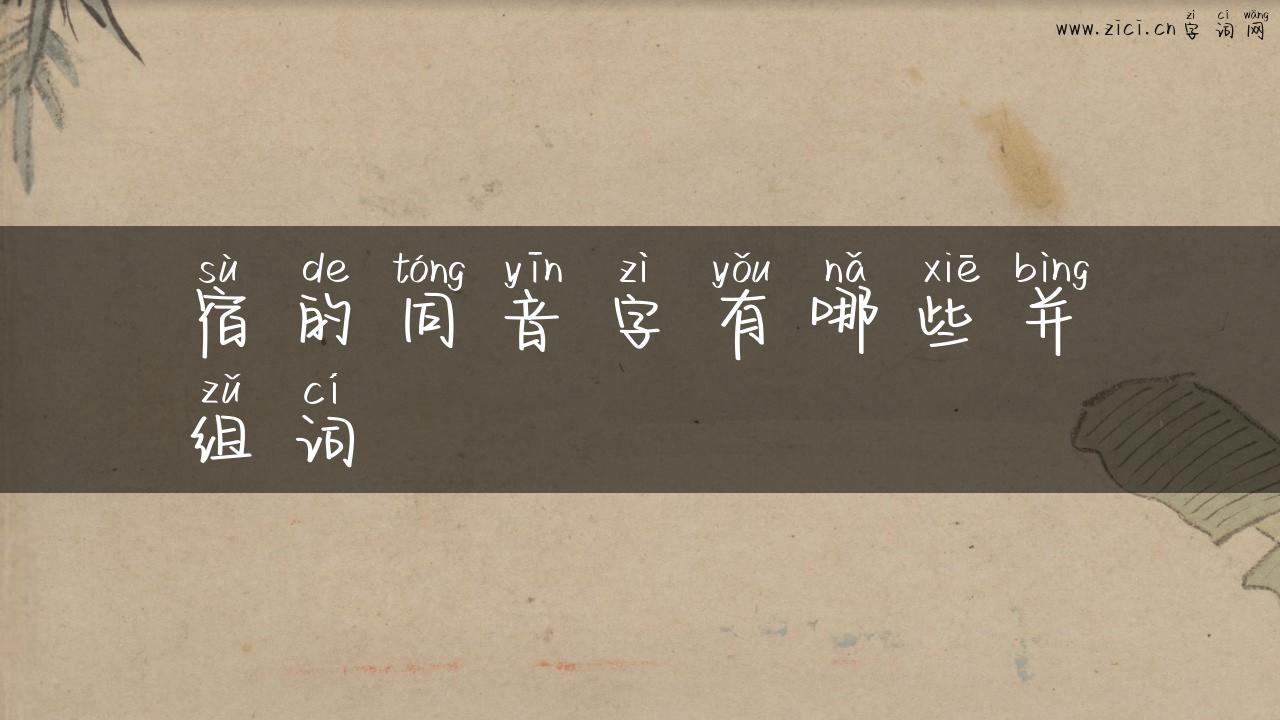 zì cí wǎng
www.zici.cn 字词网
sù de tóng yīn zì yǒu nǎ xiē bìng
宿的同音字有哪些并
zǔ cí
组词